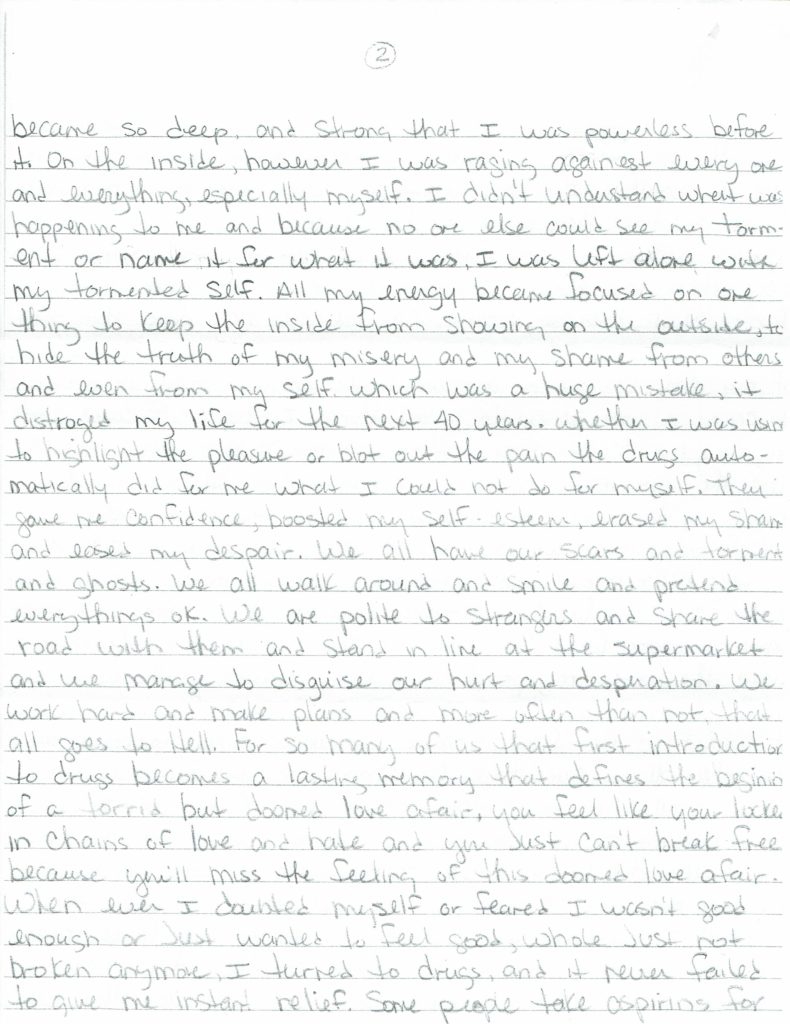 2
became so deep, and strong that I was powerless before
it. On the inside, however I was raging againest every one
and everything, especially myself. I didn't understand wheat was
happening to me and because no one else could see my torm-
ent or name it for what it was, I was left alone with
my tormented self. All my energy became focused on one
thing to keep the inside from showing on the outside, to
hide the truth of my misery and my shame from others
and even from my self which was a huge mistake, it
distroyed my life for the next 40 years. Whether I was usin
to highlight the pleasure or blot out the pain the drugs auto-
matically did for me what I could not do for myself. They
gave me confidence, boosted my self-esteem, erased my sham
and eased my despair. We all have our scars and torment
and ghosts. We all walk around and smile and pretend
everythings ok. We are polite to strangers and share the
road with them and stand in line at the supermarket
and we manage to disguise our hurt and desperation. We
work hard and make plans and more often than not, that
all goes to Hell. For so many of us that first introduction
to drugs becomes a lasting memory that defines the beginin
of a torrid but doomed love afair, you feel like your locke
in chains of love and hate and you just can't break free
because you'll miss the feeling of this doomed love afair.
When ever I doubted myself or feared I wasn't good
enough or just wanted to feel good, whole just not
broken anymore, I turned to drugs, and it never failed
to give me instant relief. Some people take aspirins for